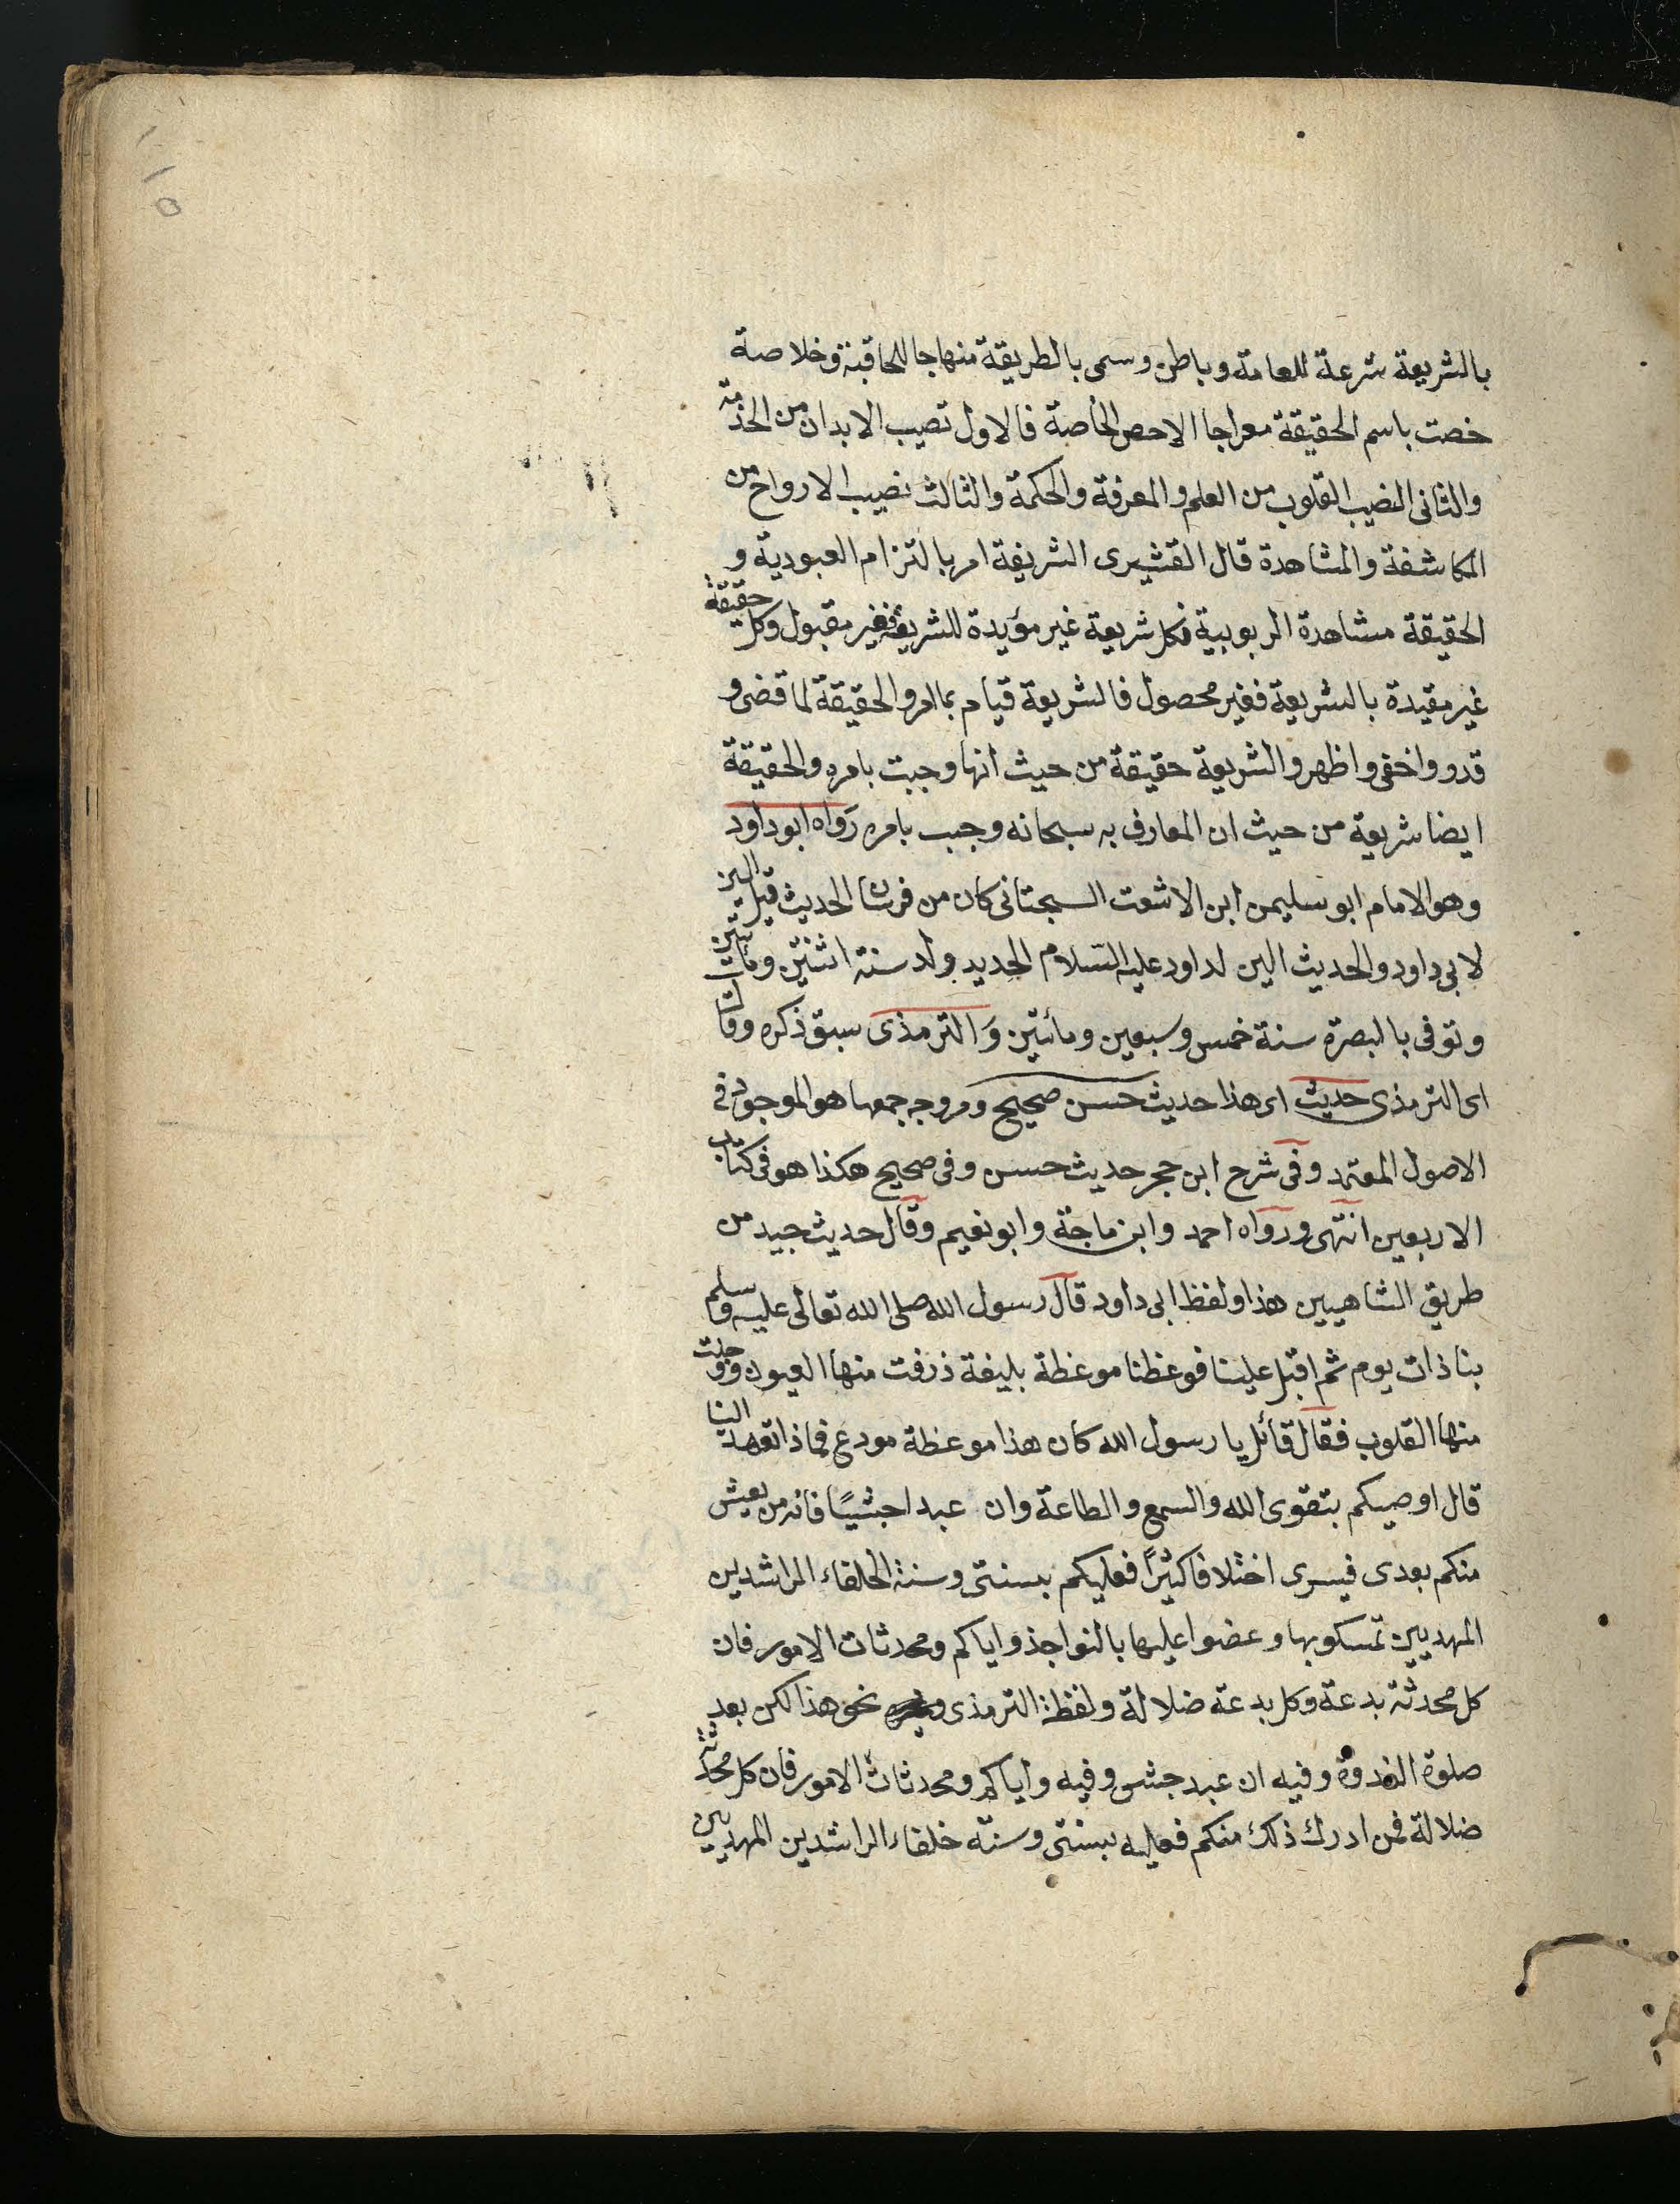 بالشريعة شرعة للعامة وباطن وسمى بالطريقة منهاجا للحاقبة وخلاصة
خصت باسم الحقيقة معراجا الاحص الخاصة فالاول تصيب الابدان من الخذمة
والثانى النصيب القلوب من العلم والمعرفة والحكمة والثالث نصيب الارواح من
المكاشفة والمشاهدة قال القشيرى الشريعة امر بالتزام العبودية و
الحقيقة مشاهدة الربوبية فكل شريعة غير مؤيدة للشريعة فغير مقبول وكل حقيقة
غير مقيدة بالشريعة فغير محصول فالشريعة قيام بما امر والحقيقة لما قضى و
قدر واخفى واظهر والشريعة حقيقة من حيث انها وجبت بامره والحقيقة
ايضا شريعة من حيث ان المعارف به سبحانه وجب بامره رواه ابو داود
وهو الامام ابو سليمن ابن الاشعت السبحتانى كان من فرسان الحديث قيل الين
لابى داود والحديث الين لداود عليه السلام الحديد ولد سنة اثنتين ومأتين
وتوفى بالبصرة سنة خمس وسبعين ومائتين والترمذى سبق ذكره وقال
اى الترمذى حديث اى هذا حديث حسن صحيح ومر وجه جمعها هو الموجود فى
الاصول المعتمد وفى شرح ابن حجر حديث حسن وفى صحيح هكذا هو فى كتاب
الاربعين انتهى ورواه احمد وابن ماجة وابو نعيم وقال حديث جيد من
طريق الشاهيين هذا ولفظ ابى داود قال رسول الله صلى الله تعالى عليه وسلم
بنا ذات يوم ثم اقبل علينا فوعظنا موعظة بليغة ذرفت منها العيون ووجلت
منها القلوب فقال قائل يا رسول الله كان هذا موعظة مودع فماذا تعهد الينا
قال اوصيكم بتقوى الله والسمع والطاعة وان عبدا حبشيًا فانه من يعيش
منكم بعدى فيسرى اختلافا كثيرًا فعليكم بسنتى وسنة الخلفاء الراشدين
المهديين تمسكوبها وعضوا عليها بالنواجذ واياكم ومحدثات الامور فان
كل محدثة بدعة وكل بدعة ضلالة ولفظ الترمذى نحو هذا لكن بعد
صلوة الغدوة وفيه ان عبد حبشى وفيه واياكم ومحدثات الامور فان كل محدثة
ضلالة فمن ادرك ذلك منكم فعليه بسنتى وسنة خلفاء الراشدين المهديين